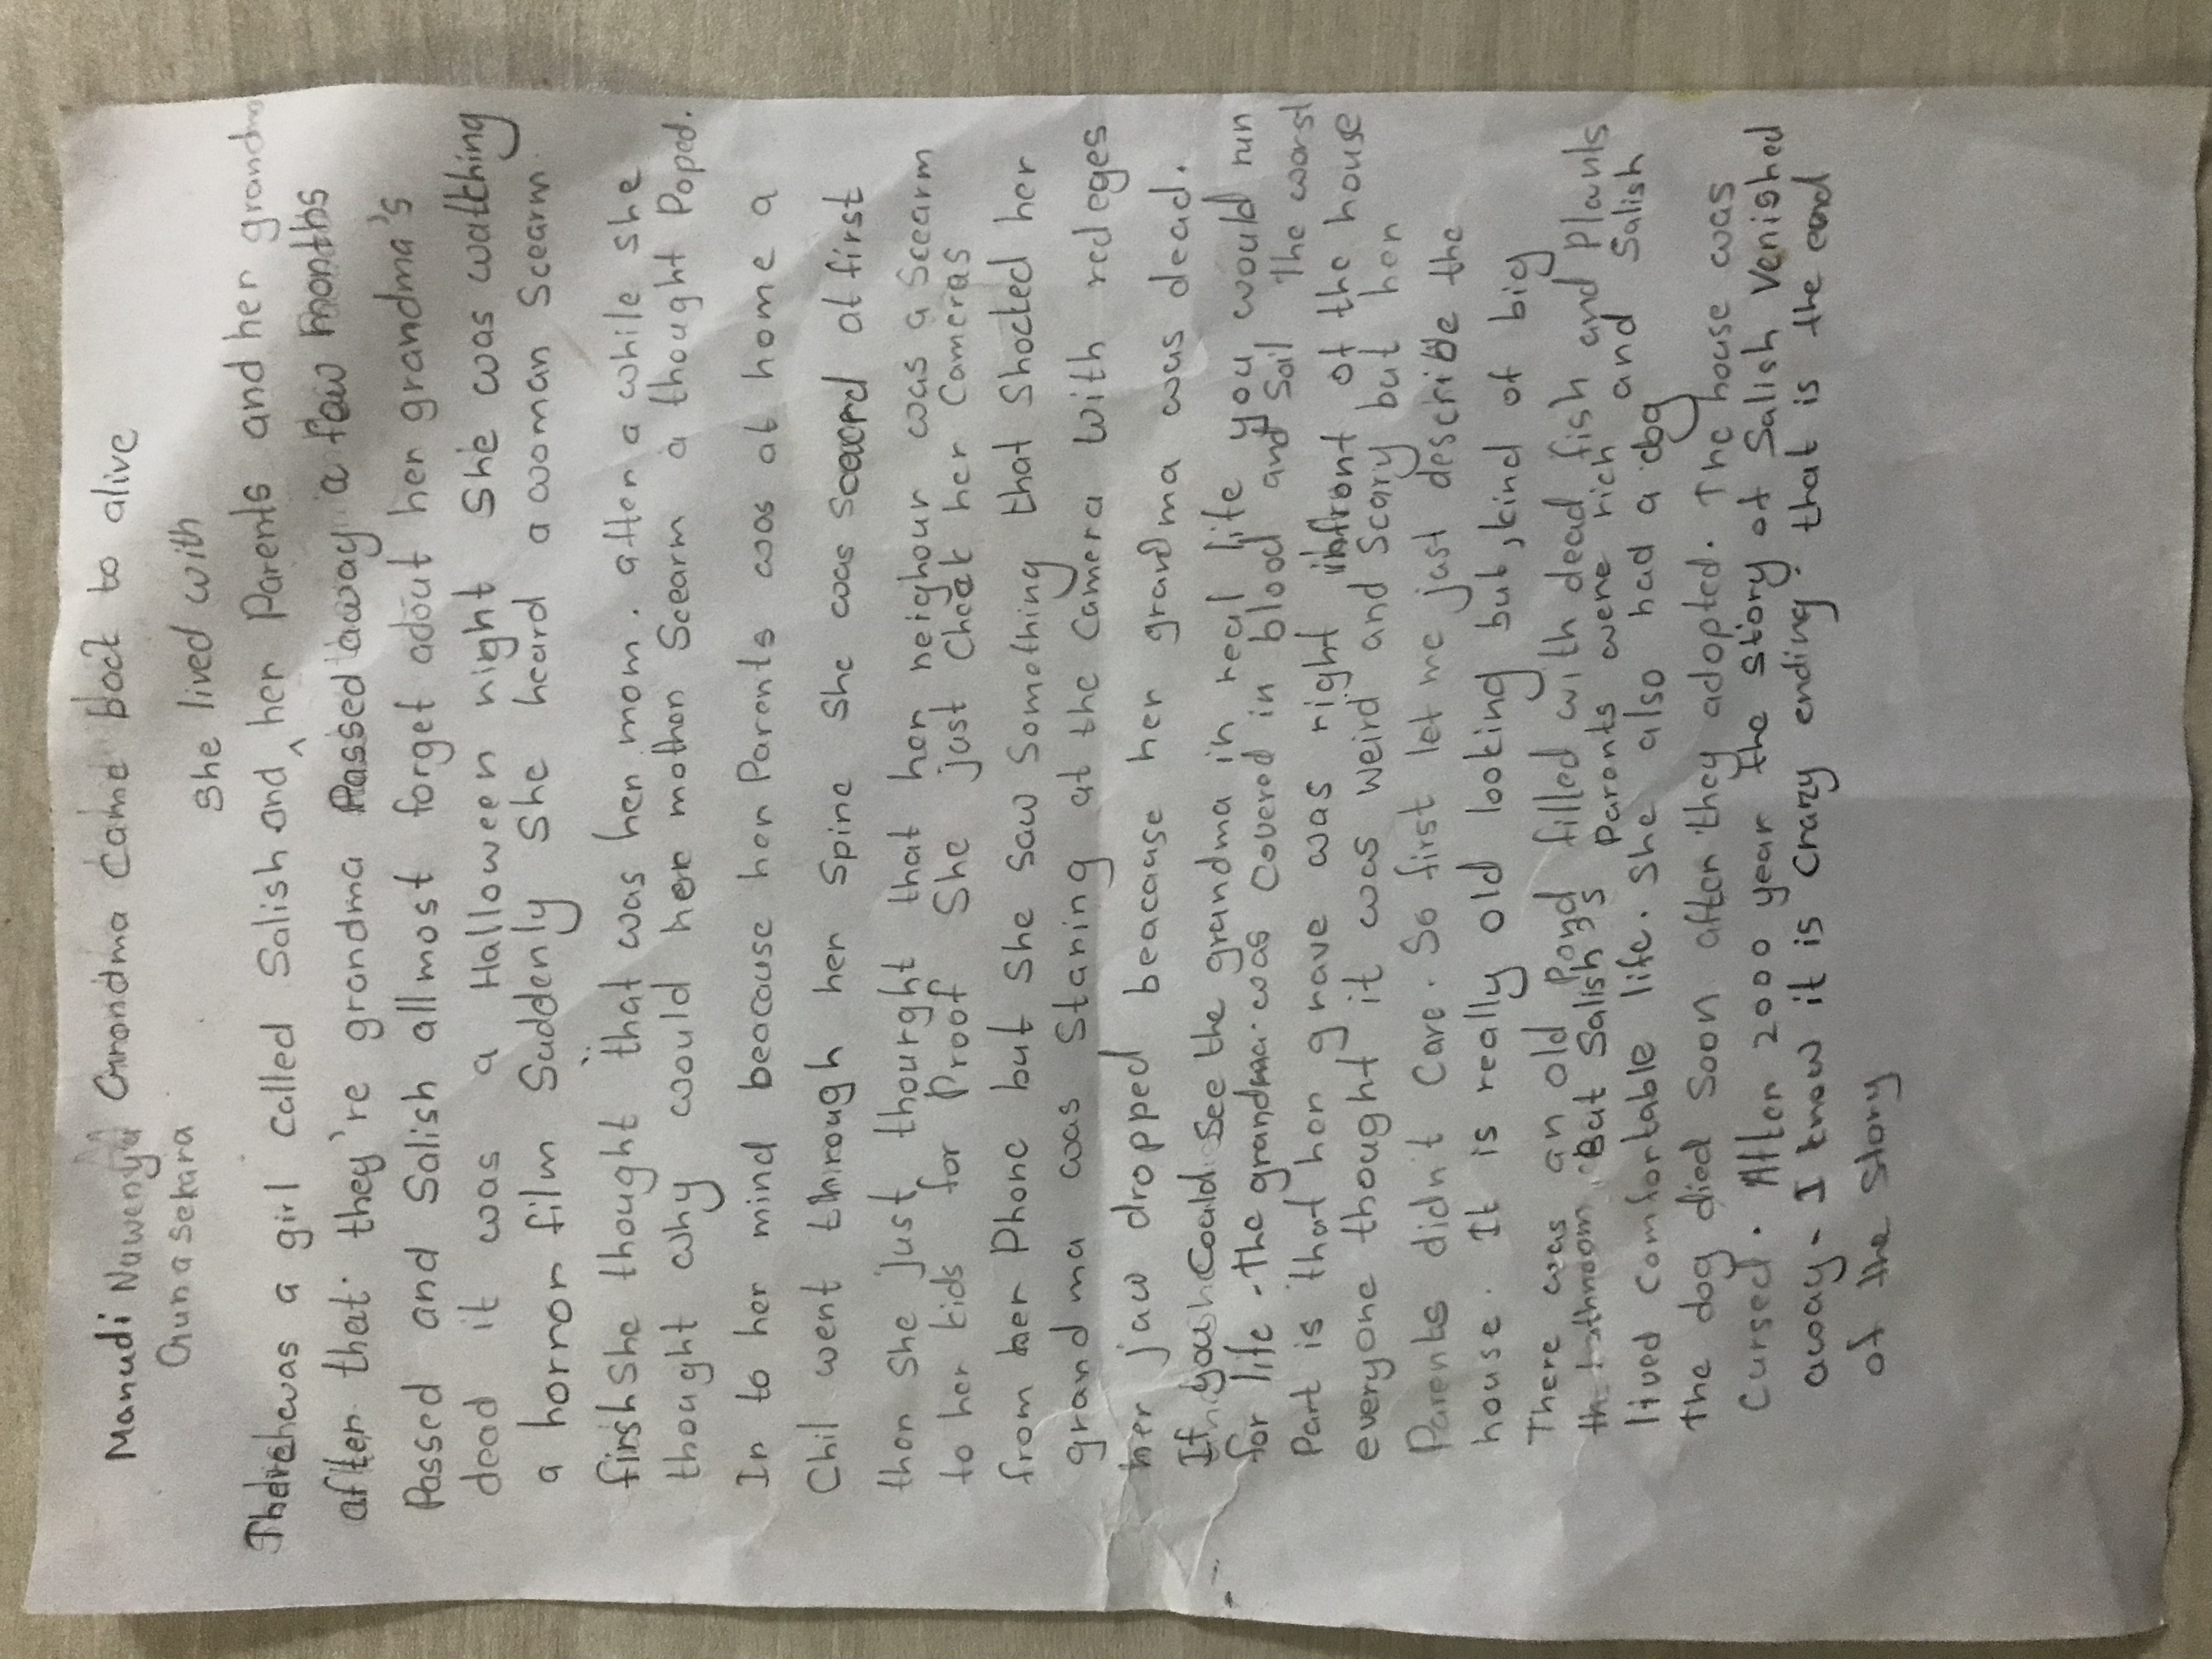 Manudi Nuwenya Grandma Came back to alive
Gunasekara
She lived with
There was a girl called Salish and ^ her Parents and her grandma
after that they're grandma Passed away a few months
Passed and Salish allmost forget adout her grandma's
dead it was a Halloween night She was wathing
a horror film Suddenly She heard a woman Scearm
first She thought that was her mom. after a while she
thought why would here mother Scearm a thought Poped.
In to her mind beacause her Parents was at home a
Chil went through her spine She was scared at first
then she just thourght that her neighour was a Scearm
to her kids for Proof She just Check her Cameras
from her Phone but she saw Something that Shocked her
grandma was staring at the Camera with red eges
her jaw dropped beacause her grandma was dead.
If you Could See the grandma in real life you would run
for life - the grandma was Covered in blood and Soil The worst
Part is that her grave was right infront of the house
everyone thought it was weird and Scary but her
Parents didn't Care. So first let me just describe the
house. It is really old looking but, kind of big
There was an old Pond filled with dead fish and Plants
But Salish's Parents were rich and Salish
lived comfortable life. She also had a dog
the dog died Soon after they adopted. The house was
Cursed. After 2000 year the story of Salish Venished
away - I know it is Crazy ending that is the end
of the Story